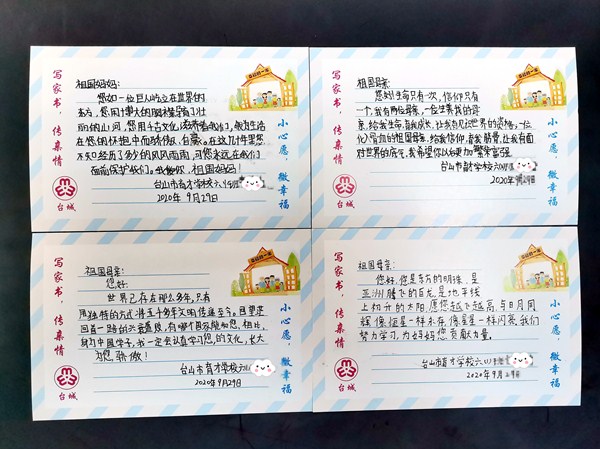 写家书，传亲情
台城
祖国妈妈:
您如一位巨人屹立在世界的
东方，您用博大的胸襟孕育了壮
丽的山河，您用千古文化滋养着我们，我为生活
在您的怀抱中而骄傲、自豪。在这几十年里您
不知经历了多少的风风雨雨，可您永远在我们
面前保护我们。我爱你，祖国妈妈！
台山市育才学校六
2020年9月29日
小心愿，微幸福
写家书，传亲情
台城
祖国母亲:
您好!生命只有一次，信仰只有
一个，我有两位母亲，一位生养我的母
亲，给我生命，育我成长，让我有见识世界的资格，一位
祖国母亲，给我信仰，育我脊骨，让我有面
对世界的底气，我希望你以后更加繁荣富强
台山市育才学校六
2020年9月29日
小心愿，微幸福
写家书，传亲情
台城
祖国母亲:
您好:
世界已存在那么多年，只有
用独特的方式将五千多年文明传递至今。目里走
回首一路的兴衰
身为中国学子，我一定会认真学习您的文化，长大
为您骄傲！
台山市育才学校六
2020年9月29日
小心愿，微幸福
写家书，传亲情
台城
祖国母亲:
您好,您是东方的明珠,是
亚洲腾飞的巨龙,是地平线
上初升的太阳,愿您越飞越高,与日月同
辉,像恒星一样永存,像星星一样闪亮,我们
努力学习,为好妈妈您贡献力量。
台山市育才学校六
2020年9月29日
小心愿，微幸福